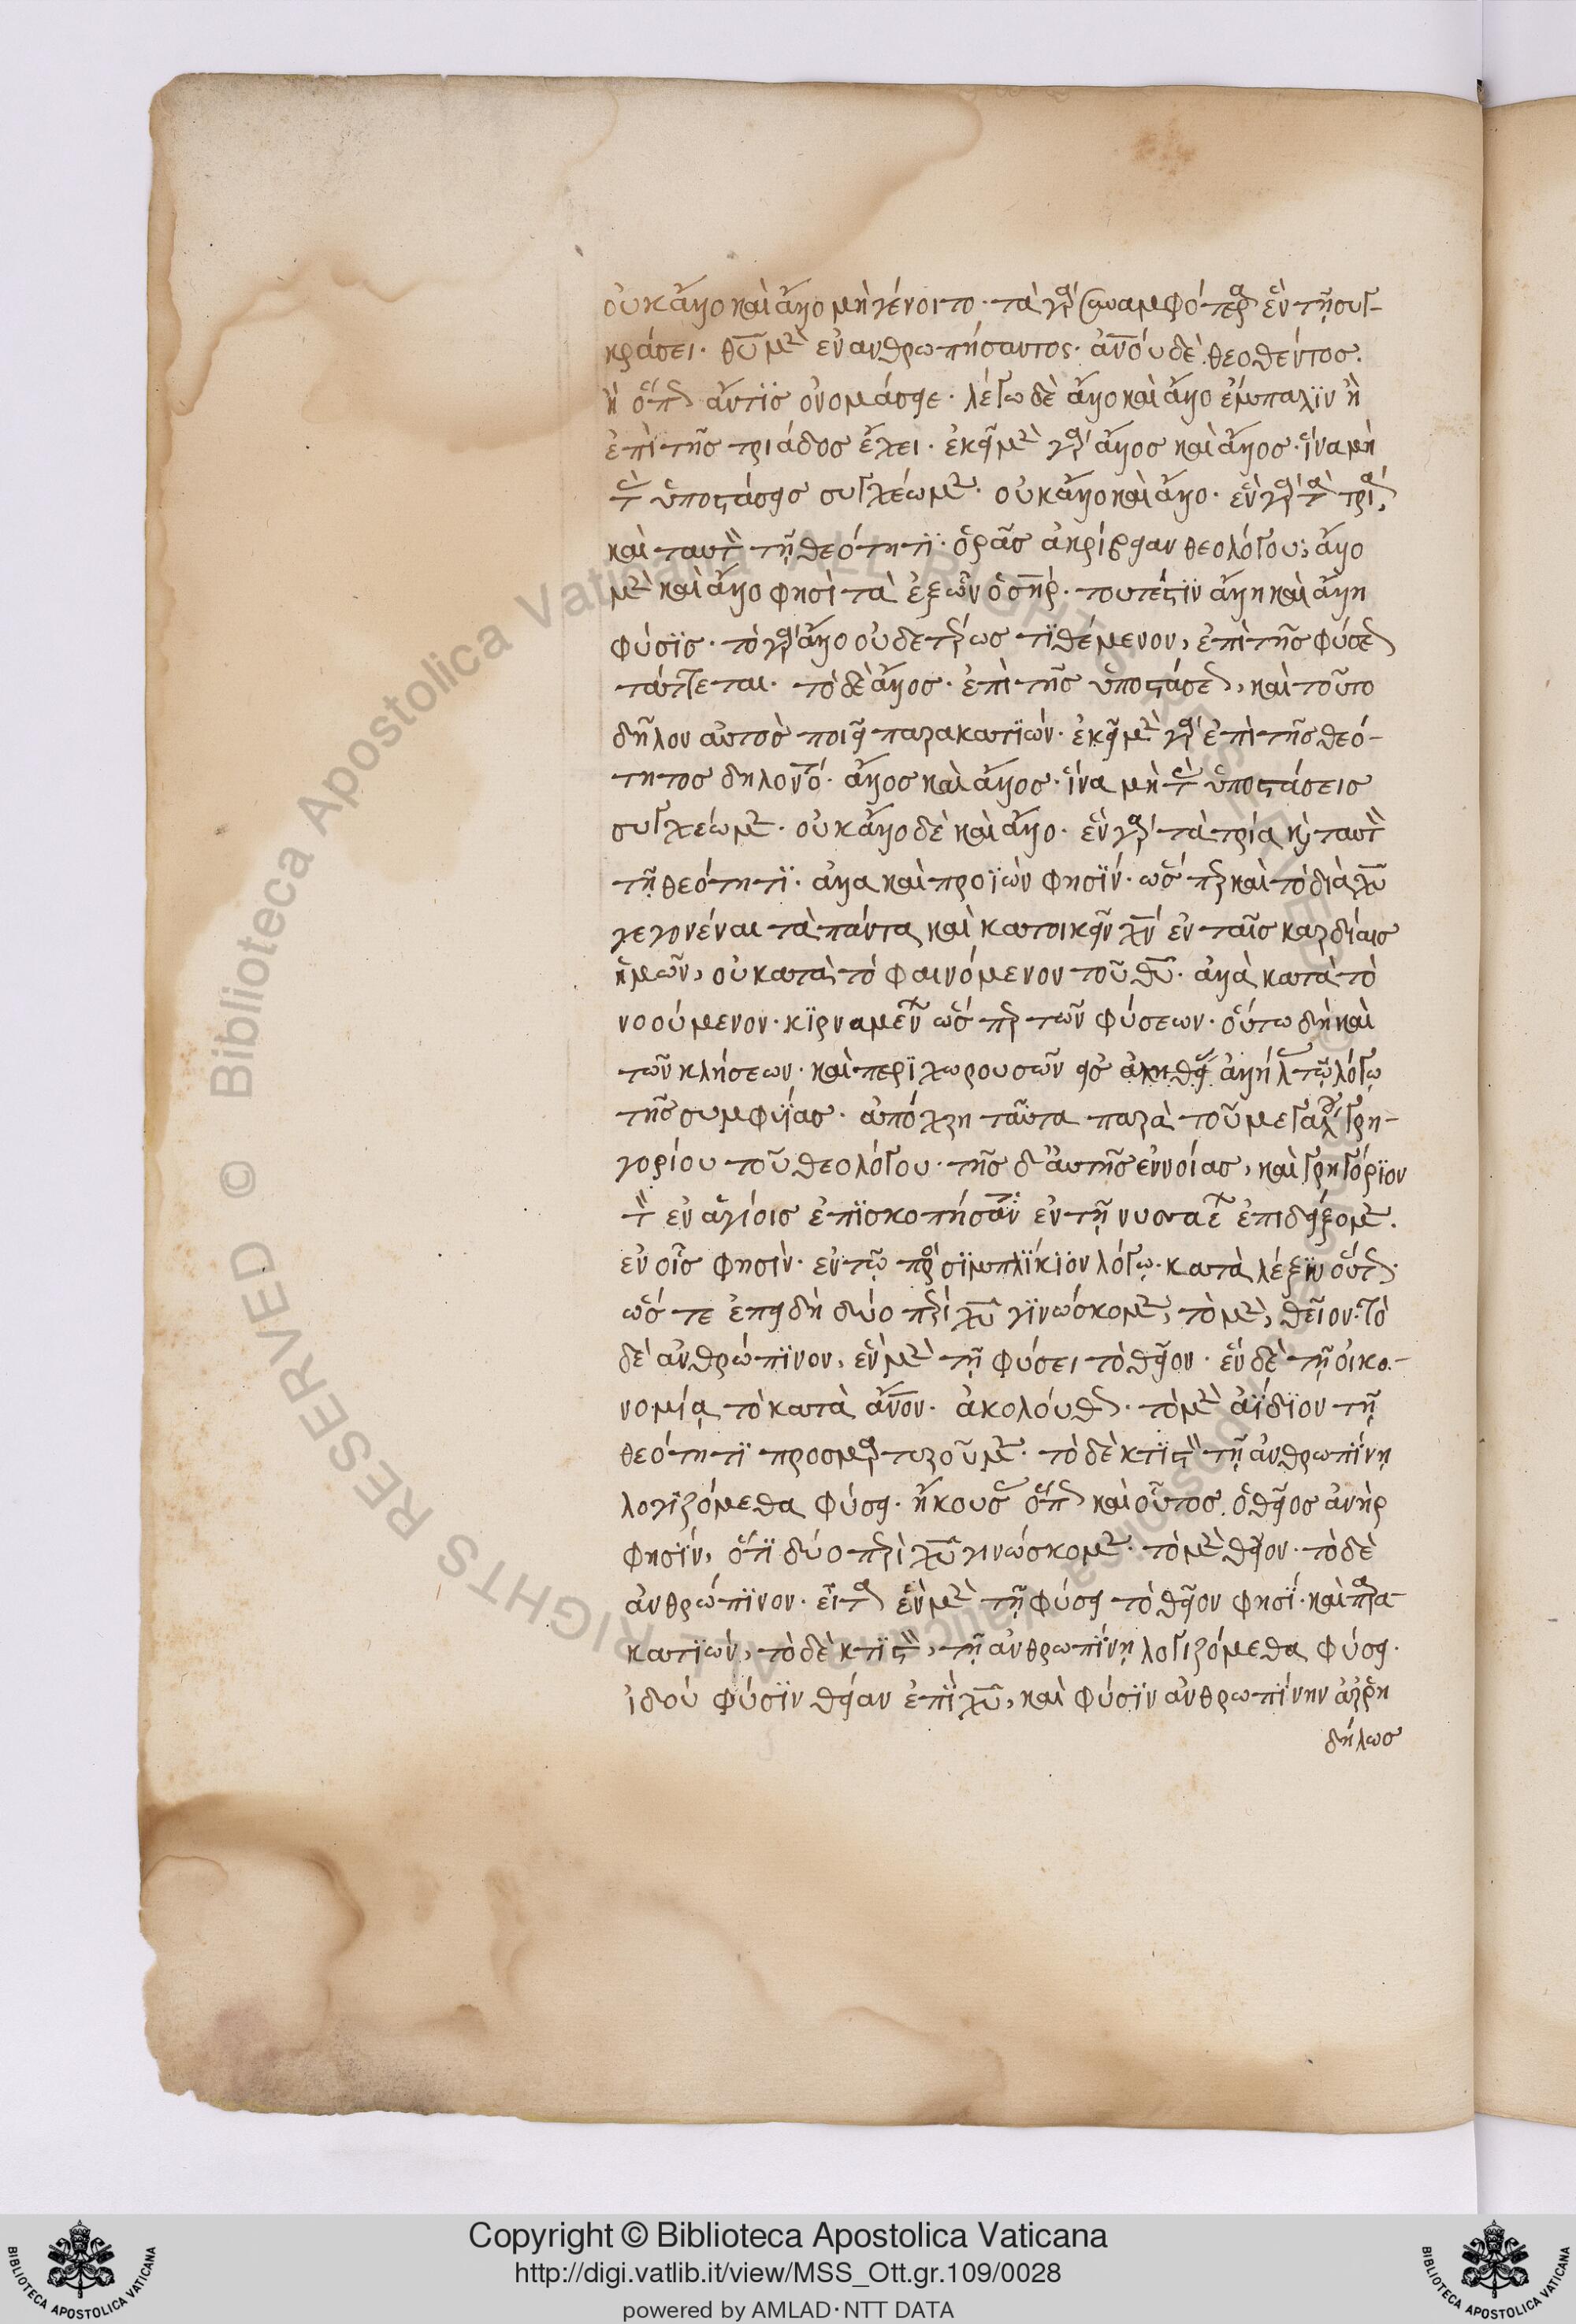 οὐκ ἄλλο καὶ ἄλλο μὴ γένοιτο· τὰ γὰρ συναμφότερα ἓν τῇ συγ-
κράσει· θῦ μὲν ἐνανθρωπήσαντος· ἀνου δὲ θεοθέντος.
ἢ ὅπως ἄν τις ὀνομάσειε· λέγω δὲ ἄλλο καὶ ἄλλο ἔμπαλιν ἢ
ἐπὶ τῆς τριάδος ἔχει· ἐκεῖ μὲν γὰρ ἄλλος καὶ ἄλλος· ἵνα μὴ
τὰς ὑποστάσεις συγχέωμεν· οὐκ ἄλλο καὶ ἄλλο· ἓν γὰρ τὰ τρία,
καὶ ταυτὸν τῇ θεότητι· ὁρᾶς ἀκρίβειαν θεολόγου; ἄλλο
μὲν καὶ ἄλλο φησὶ τὰ ἐξ ὧν ὁ σηρ· τουτέστιν ἄλλη καὶ ἄλλη
φύσις· τὸ γὰρ ἄλλο οὐδετέρως τιθέμενον, ἐπὶ τῆς φύσεως
τάττεται· τὸ δὲ ἄλλος· ἐπὶ τῆς ὑποστάσεως, καὶ τοῦτο
δῆλον αὐτὸς ποιεῖ παρακατιών· ἐκεῖ μὲν γὰρ ἐπὶ τῆς θεό-
τητος δηλονότι· ἄλλος καὶ ἄλλος· ἵνα μὴ τὰς ὑποστάσεις
συγχέωμεν· οὐκ ἄλλο δὲ καὶ ἄλλο· ἓν γὰρ τὰ τρία καὶ ταυτὸν
τῇ θεότητι· ἀλλὰ καὶ προϊών φησίν· ὥσπερ καὶ τὸ διὰ χυ
γεγονέναι τὰ πάντα καὶ κατοικεῖν χν ἐν ταῖς καρδίαις
ἡμῶν, οὐ κατὰ τὸ φαινόμενον τοῦ θυ· ἀλλὰ κατὰ τὸ
νοούμενον· κιρναμένων ὥσπερ τῶν φύσεων· οὕτω δὴ καὶ
τῶν κλήσεων· καὶ περιχωρουσῶν εἰς ἀλλήλας τῷ λόγῳ
τῆς συμφυΐας· ἀπόχρη ταῦτα παρὰ τοῦ μεγάλου Γρη-
γορίου τοῦ θεολόγου· τῆς δ' αὐτῆς ἐννοίας, καὶ Γρηγόριον
τὸν ἐν ἁγίοις ἐπισκοπήσαντα ἐν τῇ νυσσαέων ἐπιδείξομεν.
ἐν οἷς φησὶν· ἐν τῷ πρὸς σιμπλίκιον λόγῳ· κατὰ λέξιν οὕτως·
ὥστε ἐπειδὴ δύο περὶ χυ γινώσκομεν, τὸ μὲν, θεῖον· τὸ
δὲ ἀνθρώπινον, ἓν μὲν τῇ φύσει τὸ θεῖον· ἓν δὲ τῇ οἰκο-
νομίᾳ τὸ κατὰ ανον· ἀκολούθως· τὸ μὲν ἀΐδιον τῇ
θεότητι προσμαρτυροῦμεν· τὸ δὲ κτιστὸν τῇ ἀνθρωπίνῃ
λογιζόμεθα φύσει· ἤκουσας ὅπως καὶ οὗτος ὁ θεῖος ἀνὴρ
φησίν, ὅτι δύο περὶ χυ γινώσκομεν· τὸ μὲν θεῖον· τὸ δὲ
ἀνθρώπινον· εἶτα ἓν μὲν τῇ φύσει τὸ θεῖον φησί· καὶ παρα-
κατιών, τὸ δὲ κτιστὸν, τῇ ἀνθρωπίνῃ λογιζόμεθα φύσει.
ἰδού φύσιν θείαν ἐπὶ χυ, καὶ φύσιν ἀνθρωπίνην ἀρρι
δήλως
Copyright © Biblioteca Apostolica Vaticana
http://digi.vatlib.it/view/MSS_Ott.gr.109/0028
powered by AMLAD·NTT DATA